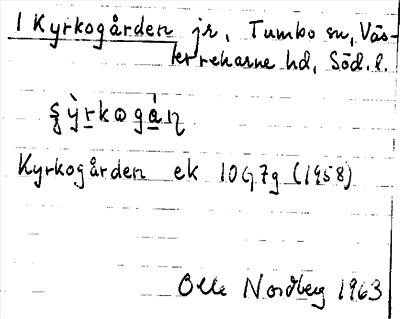 1 Kyrkogården jr, Tumbo sn, Väs-
terrekarne hd, Söd. l.
Kyrkogården ek 10G7g (1958)
Olle Nordberg 1963